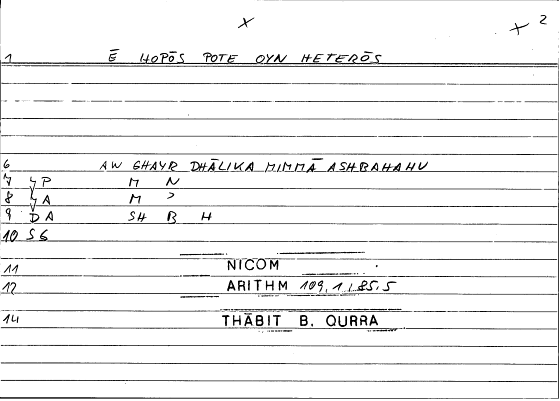 x + 2
1 Ē HOPŌS POTE OYN HETERŌS
6 AW GHAYR DHĀLIKA MIMMĀ ASHBAHAHU
7 P M N
8 A M ʾ
9 DA SH B H
10 SG
11 NICOM
12 ARITHM 109,1,85,5
14 THĀBIT B. QURRA